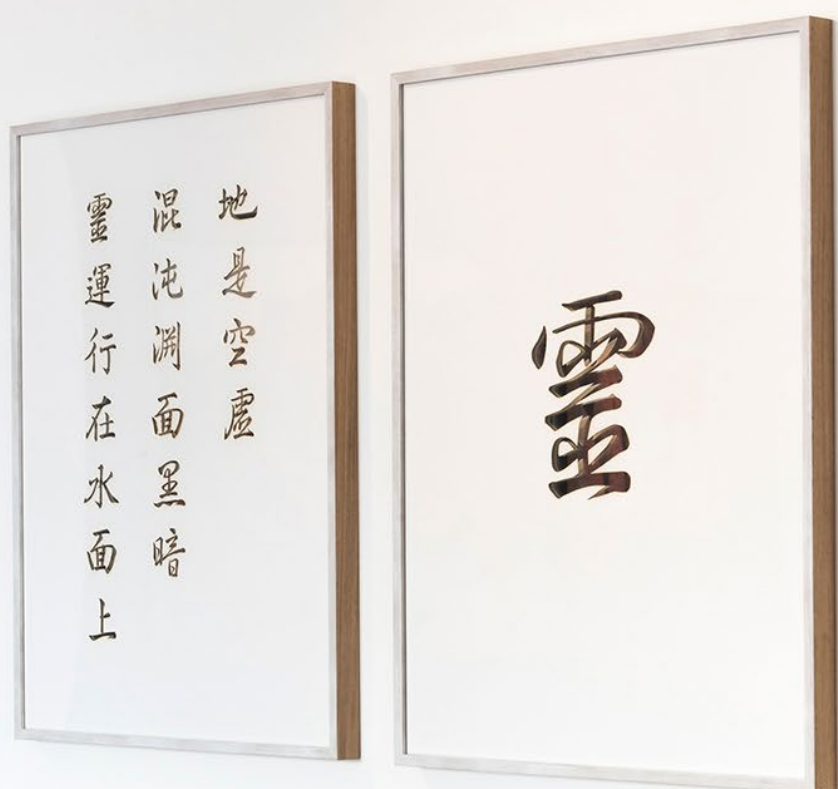 地是空虛
混沌淵面黑暗
靈運行在水面上
靈